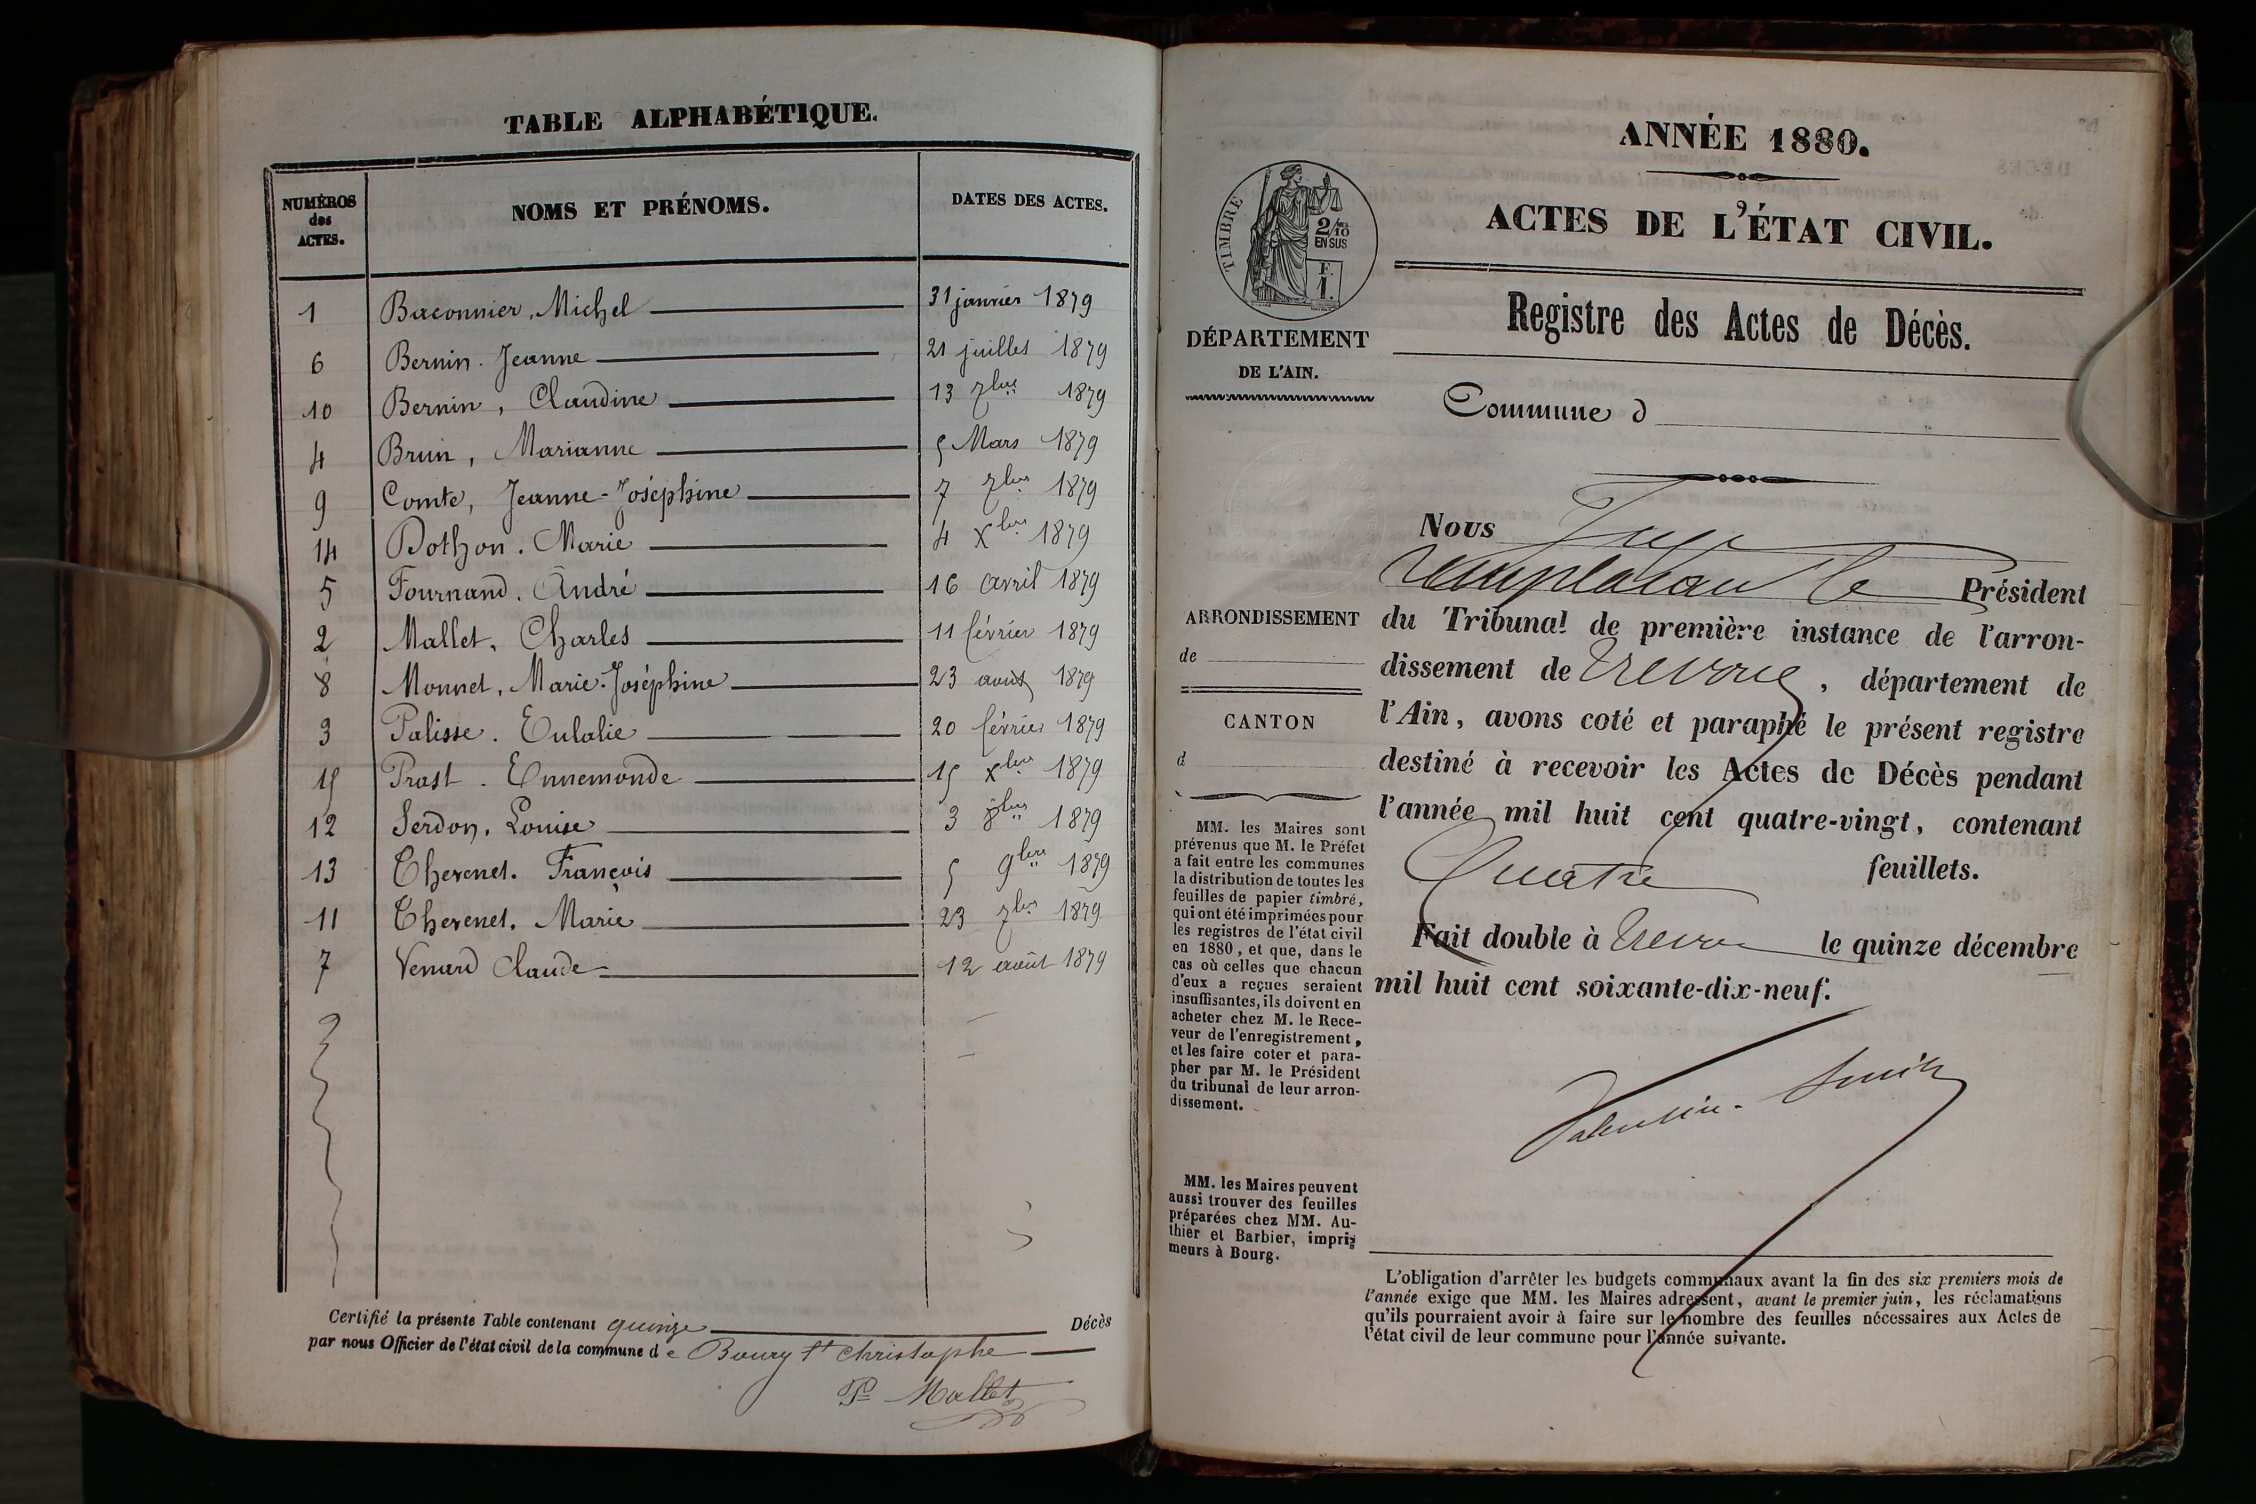 TABLE ALPHABÉTIQUE.
NUMÉROS des ACTES. NOMS ET PRÉNOMS. DATES DES ACTES.
1 Baconnier, Michel 31 janvier 1879
6 Bernin. Jeanne 21 juillet 1879
10 Bernin, Claudine 13 7bre 1879
4 Brun, Marianne 5 Mars 1879
9 Comte, Jeanne-Joséphine 7 7bre 1879
14 Dothon. Marie 4 Xbre 1879
5 Fournand. André 16 avril 1879
2 Mallet, Charles 11 février 1879
8 Monnet, Marie-Joséphine 23 août 1879
3 Palisse. Eulalie 20 février 1879
15 Prost. Ennemonde 15 Xbre 1879
12 Serdon, Louise 3 8bre 1879
13 Thevenet. François 5 9bre 1879
11 Thevenet. Marie 23 7bre 1879
7 Venard Claude 12 août 1879
Certifié la présente Table contenant quinze Décès
par nous Officier de l'état civil de la commune de Bourg St Christophe
Mallet
ANNÉE 1880.
ACTES DE L'ÉTAT CIVIL.
Registre des Actes de Décès.
TIMBRE
2/10
EN SUS
F.
1.
DÉPARTEMENT
DE L'AIN.
Commune d
ARRONDISSEMENT
de
CANTON
d
MM. les Maires sont
prévenus que M. le Préfet
a fait entre les communes
la distribution de toutes les
feuilles de papier timbré,
qui ont été imprimées pour
les registres de l'état civil
en 1880, et que, dans le
cas où celles que chacun
d'eux a reçues seraient
insuffisantes, ils doivent en
acheter chez M. le Rece-
veur de l'enregistrement,
et les faire coter et para-
pher par M. le Président
du tribunal de leur arron-
dissement.
MM. les Maires peuvent
aussi trouver des feuilles
préparées chez MM. Au-
thier et Barbier, impri-
meurs à Bourg.
Nous Juge
remplaçant le Président
du Tribunal de première instance de l'arron-
dissement de Trévoux, département de
l'Ain, avons coté et paraphé le présent registre
destiné à recevoir les Actes de Décès pendant
l'année mil huit cent quatre-vingt, contenant
Quatre feuillets.
Fait double à Trévoux le quinze décembre
mil huit cent soixante-dix-neuf.
Valentin-Smith
L'obligation d'arrêter les budgets communaux avant la fin des six premiers mois de
l'année exige que MM. les Maires adressent, avant le premier juin, les réclamations
qu'ils pourraient avoir à faire sur le nombre des feuilles nécessaires aux Actes de
l'état civil de leur commune pour l'année suivante.